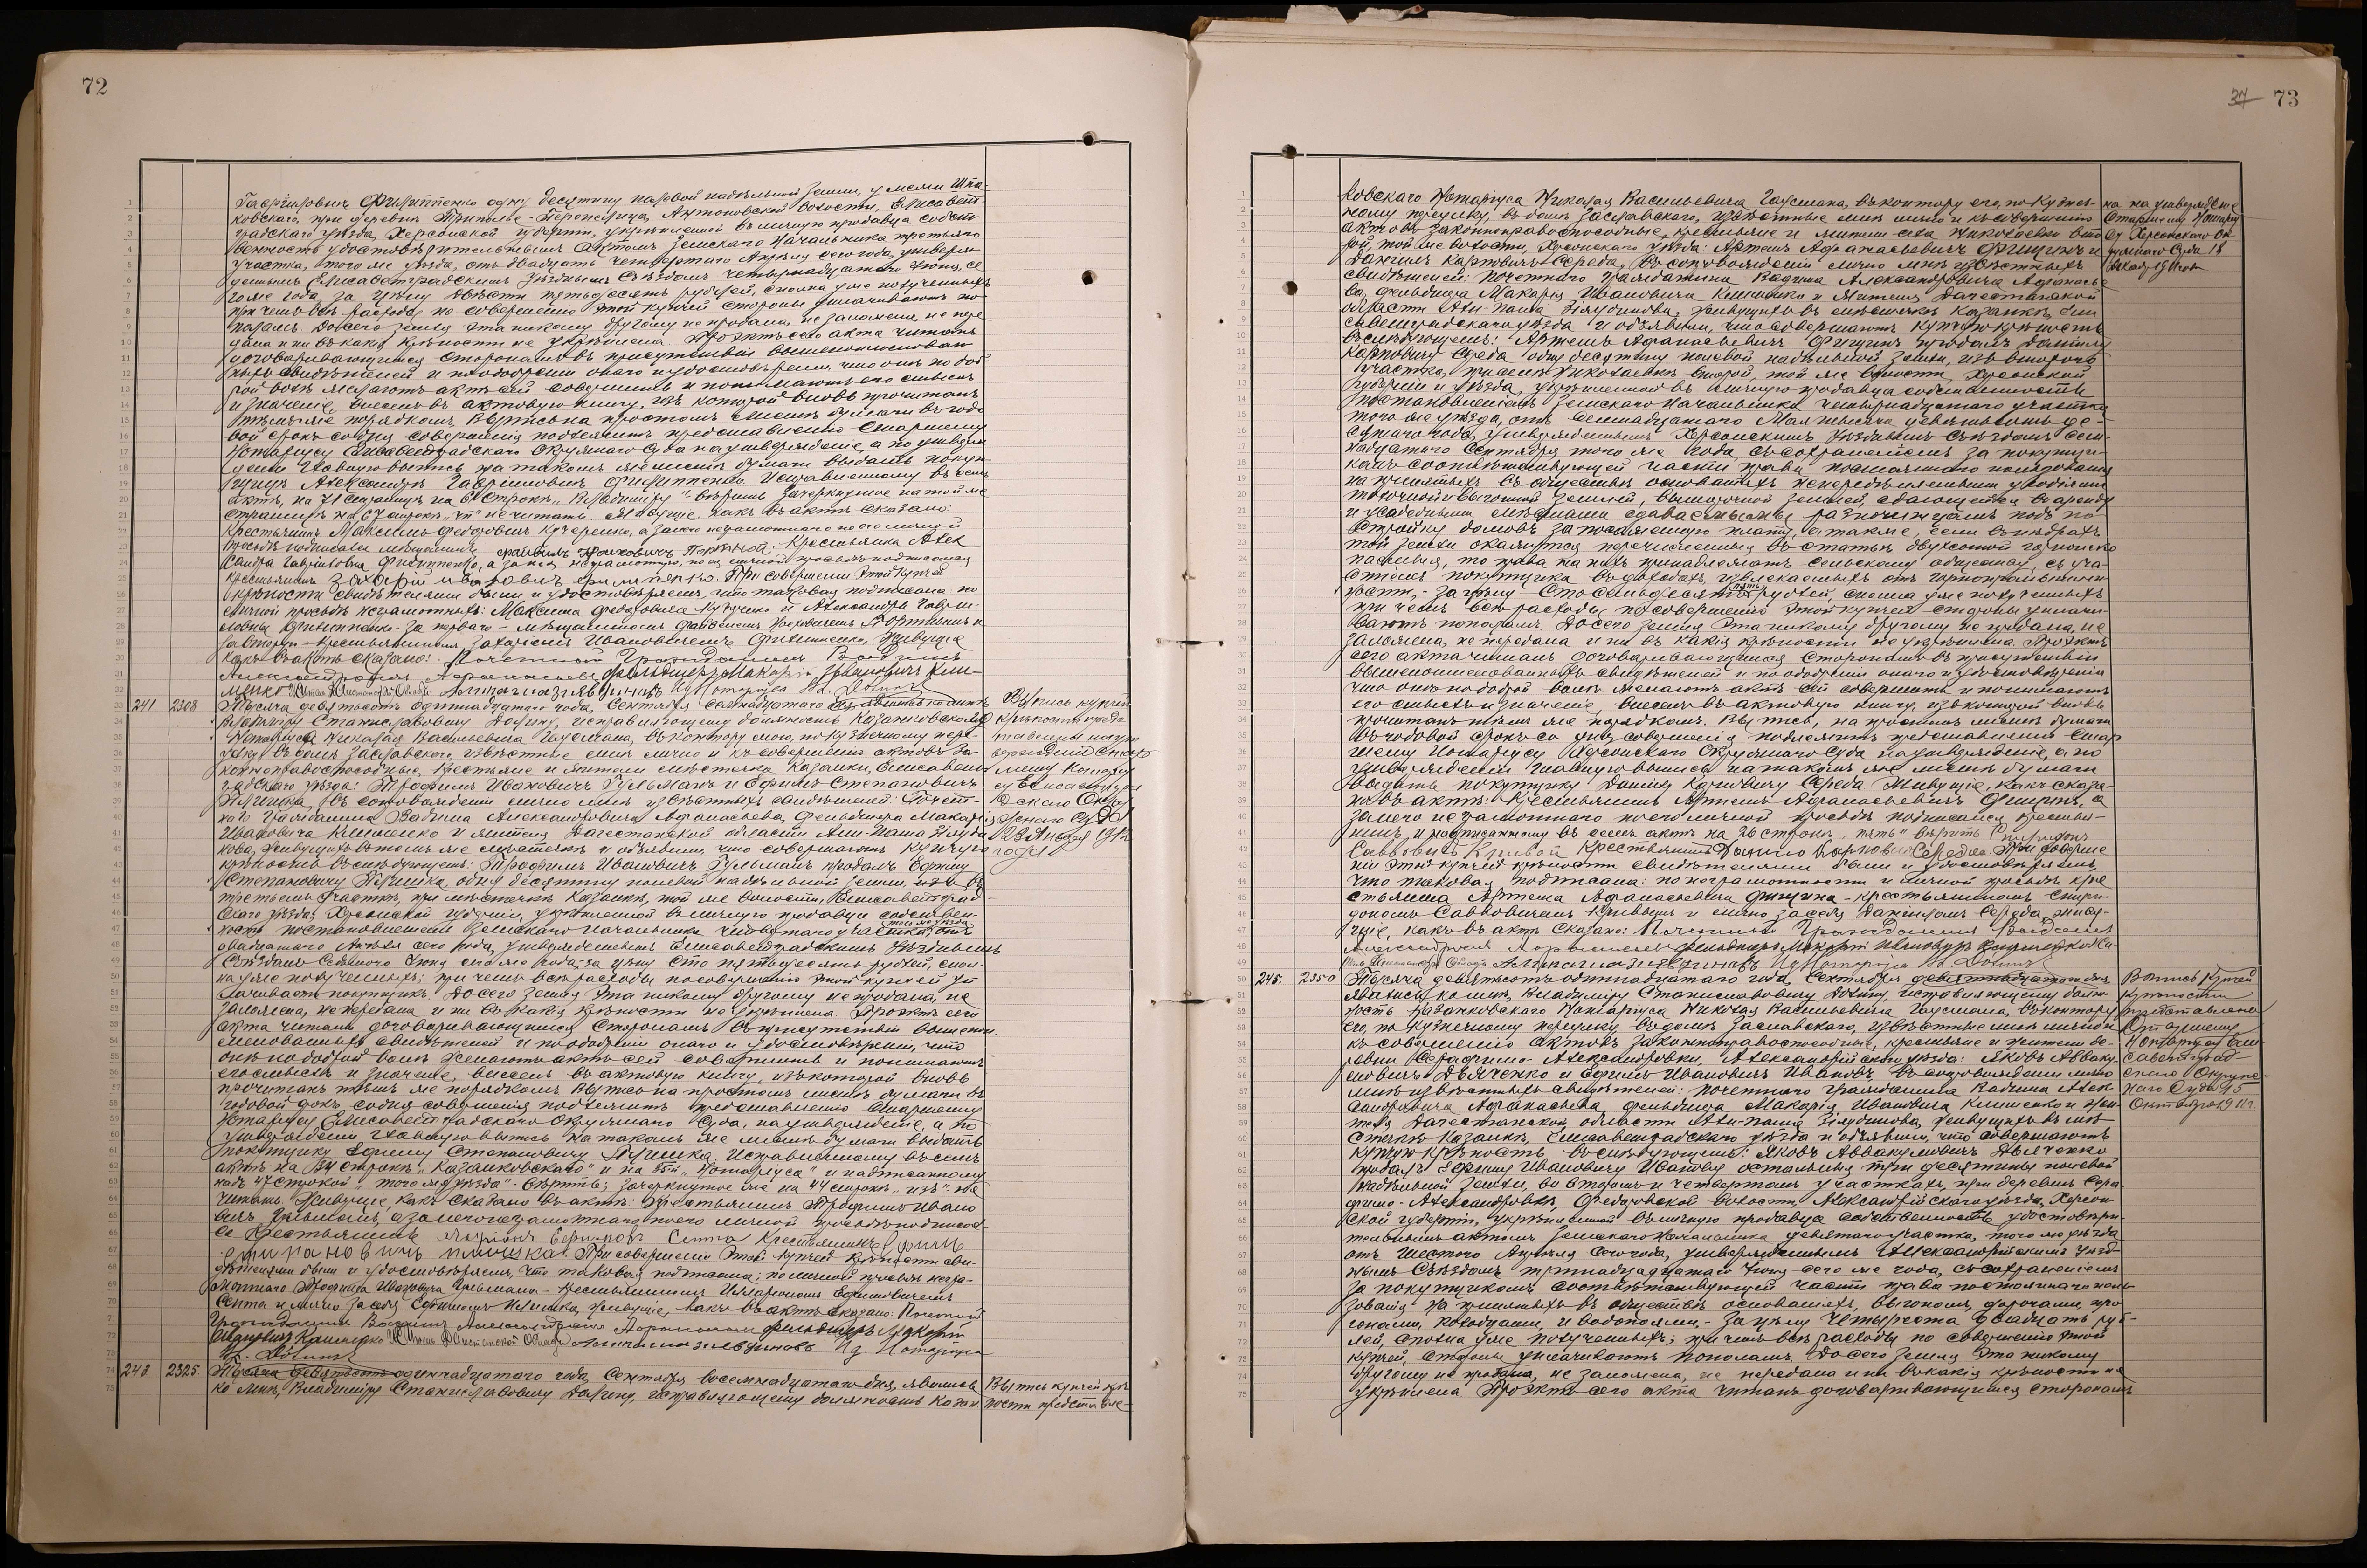 72
Гавриловичъ Филиппенко одну десятину паевой надѣльной земли, у межи Шпа-
ковскаго, при деревнѣ Антоновской волости, Елисавет-
градскаго уѣзда, Херсонской губерніи, укрѣпленной въ личную продавца собст-
венность удостовѣрительнымъ актомъ Земскаго Начальника третьяго
участка, того же уѣзда, отъ двадцать четвертаго Апрѣля сего года, утверж-
деннымъ Елисаветградскимъ Уѣзднымъ Съѣздомъ четырнадцатаго Іюня, се-
го же года, за цѣну двѣсти пятьдесятъ рублей, сполна уже полученныхъ
при чемъ всѣ расходы по совершенію этой купчей стороны уплачиваютъ по-
поламъ. До сего земля эта никому другому не продана, не заложена, не пере-
дана и ни въ какія крѣпости не укрѣплена. Проэктъ сего акта читанъ
договаривающимся сторонамъ въ присутствіи вышепоименован-
ныхъ свидѣтелей и по одобреніи онаго и удостовѣреніи, что они по доб-
рой волѣ желаютъ актъ сей совершить и понимаютъ его смыслъ
и значеніе, внесенъ въ актовую книгу, изъ которой вновь прочитанъ
тѣмъ же порядкомъ. Выпись на простомъ листѣ бумаги въ годо-
вой срокъ со дня совершенія подлежитъ представленію Старшему
Нотаріусу Елисаветградскаго Окружнаго Суда на утвержденіе, а по утверж-
деніи главную выпись на такомъ же листѣ бумаги выдать покуп-
щицѣ Александрѣ Гавриловнѣ Филиппенко. Исправленному въ семъ
актѣ, на 71 страницѣ на строкѣ „Владиміру" вѣрить. Зачеркнутое на той же
страницѣ на 67 строкѣ не читать. Живущіе, какъ въ актѣ сказано:
Крестьянинъ Максимъ Федоровичъ Кучеренко, а за него неграмотнаго по его личной
просьбѣ подписался мѣщанинъ Крестьянка Алек-
сандра Гавриловна Филиппенко, а за нея неграмотную, по ея личной просьбѣ подписался
крестьянинъ Захарій Ивановичъ Филипенко. При совершеніи этой купчей
крѣпости свидѣтелями были и удостовѣряемъ, что таковая подписана по
личной просьбѣ неграмотныхъ: Максима Федоровича Кучеренко и Александры Гаври-
ловны Филиппенко - за перваго - мѣщаниномъ и
за вторую - крестьяниномъ Захаріемъ Ивановичемъ Филиппенко, Живущіе
какъ въ актѣ сказано: Почетный Гражданинъ Вадимъ
Александровичъ Афанасьевъ Фельдшеръ Макарій Ивановичъ Кли-
менко И. д. Нотаріуса Вл. Долинъ
241 2308 Тысяча девятьсотъ одиннадцатаго года, Сентября явились ко мнѣ,
Владиміру Станиславовичу Долину, исправляющему должность Казанковскаго
Нотаріуса Николая Васильевича Гаусмана, въ контору мою, по Кузнечному пере-
улку въ домѣ Заславскаго, извѣстные мнѣ лично и къ совершенію актовъ за-
коноправоспособные, крестьяне и жители мѣстечка Казанки, Елисавет-
градскаго уѣзда: Трофимъ Ивановичъ Гульманъ и Ефимъ Степановичъ
Плюшка, въ сопровожденіи лично мнѣ извѣстныхъ свидѣтелей: Почет-
наго Гражданина Вадима Александровича Афанасьева, фельдшера Макарія
Ивановича Клименко и жителя Дагестанской области Али-Паша
живущихъ въ томъ же мѣстечкѣ и объявили, что совершаютъ купчую
крѣпость въ слѣдующемъ: Трофимъ Ивановичъ Гульманъ продалъ Ефиму
Степановичу Плюшка, одну десятину полевой надѣльной земли, въ
третьемъ участкѣ, при мѣстечкѣ Казанкѣ, той же волости, Елисаветград-
скаго уѣзда, Херсонской губерніи, укрѣпленной въ личную продавца собствен-
того же уѣзда
ность постановленіемъ Земскаго Начальника участка отъ
двадцатаго Апрѣля сего года, утвержденнымъ Елисаветградскимъ Уѣзднымъ
Съѣздомъ Іюня сего же года, за цѣну сто пятьдесятъ рублей, спол-
на уже полученныхъ; при чемъ всѣ расходы по совершенію этой купчей уп-
лачиваетъ покупщикъ. До сего земля эта никому другому не продана, не
заложена, не передана и ни въ какія крѣпости не укрѣплена. Проэктъ сего
акта читанъ договаривающимся сторонамъ въ присутствіи вышепои-
менованныхъ свидѣтелей и по одобреніи онаго и удостовѣреніи, что
они по доброй волѣ желаютъ актъ сей совершить и понимаютъ
его смыслъ и значеніе, внесенъ въ актовую книгу, изъ которой вновь
прочитанъ тѣмъ же порядкомъ. Выпись на простомъ листѣ бумаги въ
годовой срокъ со дня совершенія подлежитъ представленію Старшему
Нотаріусу Елисаветградскаго Окружнаго Суда, на утвержденіе, а по
утвержденіи главную выпись на такомъ же листѣ бумаги выдать
покупщику Ефиму Степановичу Плюшка. Исправленному въ семъ
актѣ на 34 строкѣ „Казанковскаго" и на 35й „Нотаріуса" и надписанному
надъ 47 строкой „того же уѣзда" - вѣрить; зачеркнутое же на 44 строкѣ „изъ" не
читать. Живущіе, какъ сказано въ актѣ: Крестьянинъ Трофимъ Ивано-
вичъ Гульманъ, а за него неграмотнаго по его личной просьбѣ подписал-
ся Крестьянинъ Крестьянинъ Ефимъ
Степановичъ Плюшка. При совершеніи этой купчей крѣпости сви-
дѣтелями были и удостовѣряемъ, что таковая подписана: по личной просьбѣ негра-
мотнаго Трофима Ивановича Гульмана - крестьяниномъ
и лично за себя Ефимомъ Плюшка, живущіе, какъ въ актѣ сказано: Почетный
Гражданинъ Вадимъ Александровичъ Афанасьевъ Фельдшеръ Макарій
Ивановичъ Клименко И. д. Нотаріуса
Вл. Долинъ
Выпись купчей
крѣпости предс-
тавлена на ут-
вержденіе Стар-
шему Нотаріу-
су Елисаветград-
скаго Окру-
жнаго Суда
23 Января 1912
года
243 2325 Тысяча девятьсотъ одиннадцатаго года, Сентября восемнадцатаго дня, явились
ко мнѣ, Владиміру Станиславовичу Долину, исправляющему должность Казан-
Выпись купчей крѣ-
пости представле-
37 73
ковскаго Нотаріуса Николая Васильевича Гаусмана, въ контору его, по Кузнеч-
ному переулку, въ домѣ Заславскаго, извѣстные мнѣ лично и къ совершенію
актовъ законоправоспособные, крестьяне и жители села Николаевки вто-
рой, той же волости, Херсонскаго уѣзда: Артемъ Афанасьевичъ Фищинъ и
Даніилъ Карповичъ Середа, въ сопровожденіи лично мнѣ извѣстныхъ
свидѣтелей: почетнаго гражданина Вадима Александровича Афанасье-
ва, фельдшера Макарія Ивановича Клименко и жителя Дагестанской
области Али-Паша живущихъ въ мѣстечкѣ Казанкѣ, Ели-
саветградскаго уѣзда и объявили, что совершаютъ купчую крѣпость
въ слѣдующемъ: Артемъ Афанасьевичъ Фищинъ продалъ Даніилу
Карповичу Середа одну десятину полевой надѣльной земли, изъ второго
участка, при селѣ Николаевкѣ второй, той же волости, Херсонской
губерніи и уѣзда, укрѣпленной въ личную продавца собственность
постановленіемъ Земскаго Начальника четырнадцатаго участка
того же уѣзда, отъ семнадцатаго Мая тысяча девятьсотъ де-
сятаго года, утвержденнымъ Херсонскимъ Уѣзднымъ Съѣздомъ
Сентября того же года, съ сохраненіемъ за покупщи-
комъ соотвѣтствующей части права постояннаго пользованія
на принятыхъ въ обществѣ основаніяхъ непередѣляемыми угодьями
толочной и выгонной землей, сдающейся въ аренду
и усадебными мѣстами, сдаваемыми разночинцамъ подъ по-
стройку домовъ за посаженную плату, а также, если въ нѣдрахъ
той земли окажутся перечисленныя въ статьѣ двухсотой
то права на нихъ принадлежатъ сельскому обществу, съ уча-
стіемъ покупщика въ доходахъ, извлекаемыхъ отъ горнопромышлен-
пять
ности, - за цѣну сто семьдесятъ рублей, сполна уже полученныхъ
при чемъ всѣ расходы по совершенію этой купчей стороны уплачи-
ваютъ пополамъ. До сего земля эта никому другому не продана, не
заложена, не передана и ни въ какія крѣпости не укрѣплена. Проэктъ
сего акта читанъ договаривающимся сторонамъ въ присутствіи
вышепоименованныхъ свидѣтелей и по одобреніи онаго и удостовѣреніи
что они по доброй волѣ желаютъ актъ сей совершить и понимаютъ
его смыслъ и значеніе, внесенъ въ актовую книгу, изъ которой вновь
прочитанъ тѣмъ же порядкомъ. Выпись, на простомъ листѣ бумаги
въ годовой срокъ со дня совершенія подлежитъ представленію Стар-
шему Нотаріусу Херсонскаго Окружнаго Суда на утвержденіе, а по
утвержденіи главную выпись на такомъ же листѣ бумаги
выдать покупщику Даніилу Карповичу Середа. Живущіе, какъ сказа-
но въ актѣ: Крестьянинъ Артемъ Афанасьевичъ Фищинъ, а
за него неграмотнаго по его личной просьбѣ подписался крестья-
нинъ, и надписанному въ семъ актѣ на 26 строкѣ „пять" вѣрить Спиридонъ
Савовичъ Кривой Крестьянинъ Данило Карповичъ Середа При соверше-
ніи этой купчей крѣпости свидѣтелями были и удостовѣряемъ,
что таковая подписана: по неграмотности и личной просьбѣ кре-
стьянина Артема Афанасьевича Фищина - крестьяниномъ Спири-
дономъ Саввовичемъ Кривымъ и лично за себя Даніиломъ Середа, живу-
щіе, какъ въ актѣ сказано: Почетный Гражданинъ Вадимъ
Александровичъ Афанасьевъ Фельдшеръ Макарій Ивановичъ Клименко
И. д. Нотаріуса Вл. Долинъ
на на утвержденіе
Старшему Нотарі-
усу Херсонскаго Ок-
ружнаго Суда 18
245. 2350 Тысяча девятьсотъ одиннадцатаго года, Сентября дня
явились ко мнѣ, Владиміру Станиславовичу Долину, исправляющему долж-
ность Казанковскаго Нотаріуса Николая Васильевича Гаусмана, въ контору
его, по Кузнечному переулку, въ домѣ Заславскаго, извѣстные мнѣ лично и
къ совершенію актовъ законоправоспособные, крестьяне и жители де-
ревни Серафимо-Александровки, Александрійскаго уѣзда: Яковъ Аввак-
умовичъ Дьяченко и Ефимъ Ивановичъ Ивановъ, въ сопровожденіи лично
мнѣ извѣстныхъ свидѣтелей: почетнаго гражданина Вадима Алек-
сандровича Афанасьева, фельдшера Макарія Ивановича Клименко и жи-
теля Дагестанской области Али-Паша живущихъ въ мѣ-
стечкѣ Казанкѣ, Елисаветградскаго уѣзда и объявили, что совершаютъ
купчую крѣпость въ слѣдующемъ: Яковъ Аввакумовичъ Дьяченко
продалъ Ефиму Ивановичу Иванову остальныя три десятины полевой
надѣльной земли, во второмъ и четвертомъ участкахъ, при деревнѣ Сера-
фимо-Александровкѣ, Федоровской волости Александрійскаго уѣзда, Херсон-
ской губерніи, укрѣпленной въ личную продавца собственность удостовѣри-
тельнымъ актомъ Земскаго Начальника девятаго участка, того же уѣзда
отъ шестого Апрѣля сего года, утвержденнымъ Александрійскимъ Уѣзд-
нымъ Съѣздомъ тринадцатаго Іюня сего же года, съ сохраненіемъ
за покупщикомъ соотвѣтствующей части права постояннаго поль-
зованія на принятыхъ въ обществѣ основаніяхъ, выгономъ, дорогами, про-
гонами, колодцами, и водопоями, - за цѣну четыреста двадцать руб-
лей, сполна уже полученныхъ; при чемъ всѣ расходы по совершенію этой
купчей, стороны уплачиваютъ пополамъ. До сего земля эта никому
другому не продана, не заложена, не передана и ни въ какія крѣпости не
укрѣплена. Проэктъ сего акта читанъ договаривающимся сторонамъ
Выпись купчей
крѣпости
представлена
Старшему
Нотаріусу Ели-
саветград-
скаго Окруж-
наго Суда 15
Октября 1911 г.